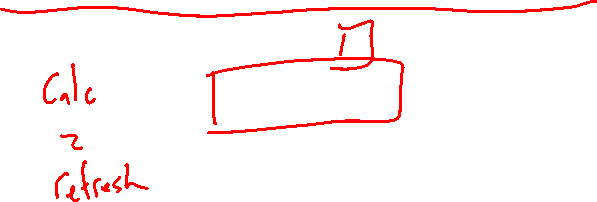 Calc
2
refresh